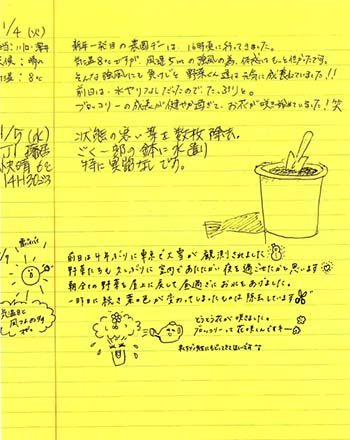 1/4 (火)
新年一発目の農園デーは、16時頃に行ってきました。
気温8℃ですが、風速5mの強風の為、体感はもっと低かったです。
そんな強風にも負けじと野菜くん達は元気に成長していました!!
前日は水やりなしだったので、たっぷりと。
ブロッコリーの成長が健やか過ぎて、お花が咲き始めていました!笑
天候:晴れ
気温:8℃
1/5 (水)
快晴 6℃
状態の悪い葉を数枚除去。
ごく一部の鉢に水遣り
特に異常なしです。
前日は4年ぶりに東京で大雪が観測されました
野菜たちも久しぶりに室内であたたかい夜を過ごせたかと思います
朝全ての野菜を屋上に戻して昼過ぎにお水をあげました。
一昨日に続き葉の色が変わってしまったものは除去しています
とうとう花が咲きました。
ブロッコリーって花咲くんですネー